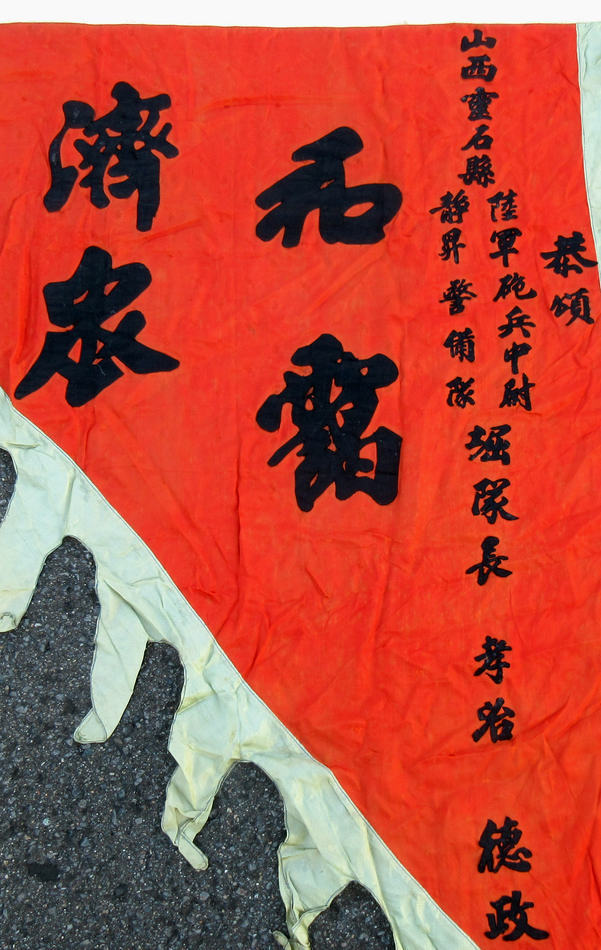 恭頌
山西靈石縣
陸軍砲兵中尉
靜昇警備隊
堀隊長 孝治 德政
和靄
濟衆